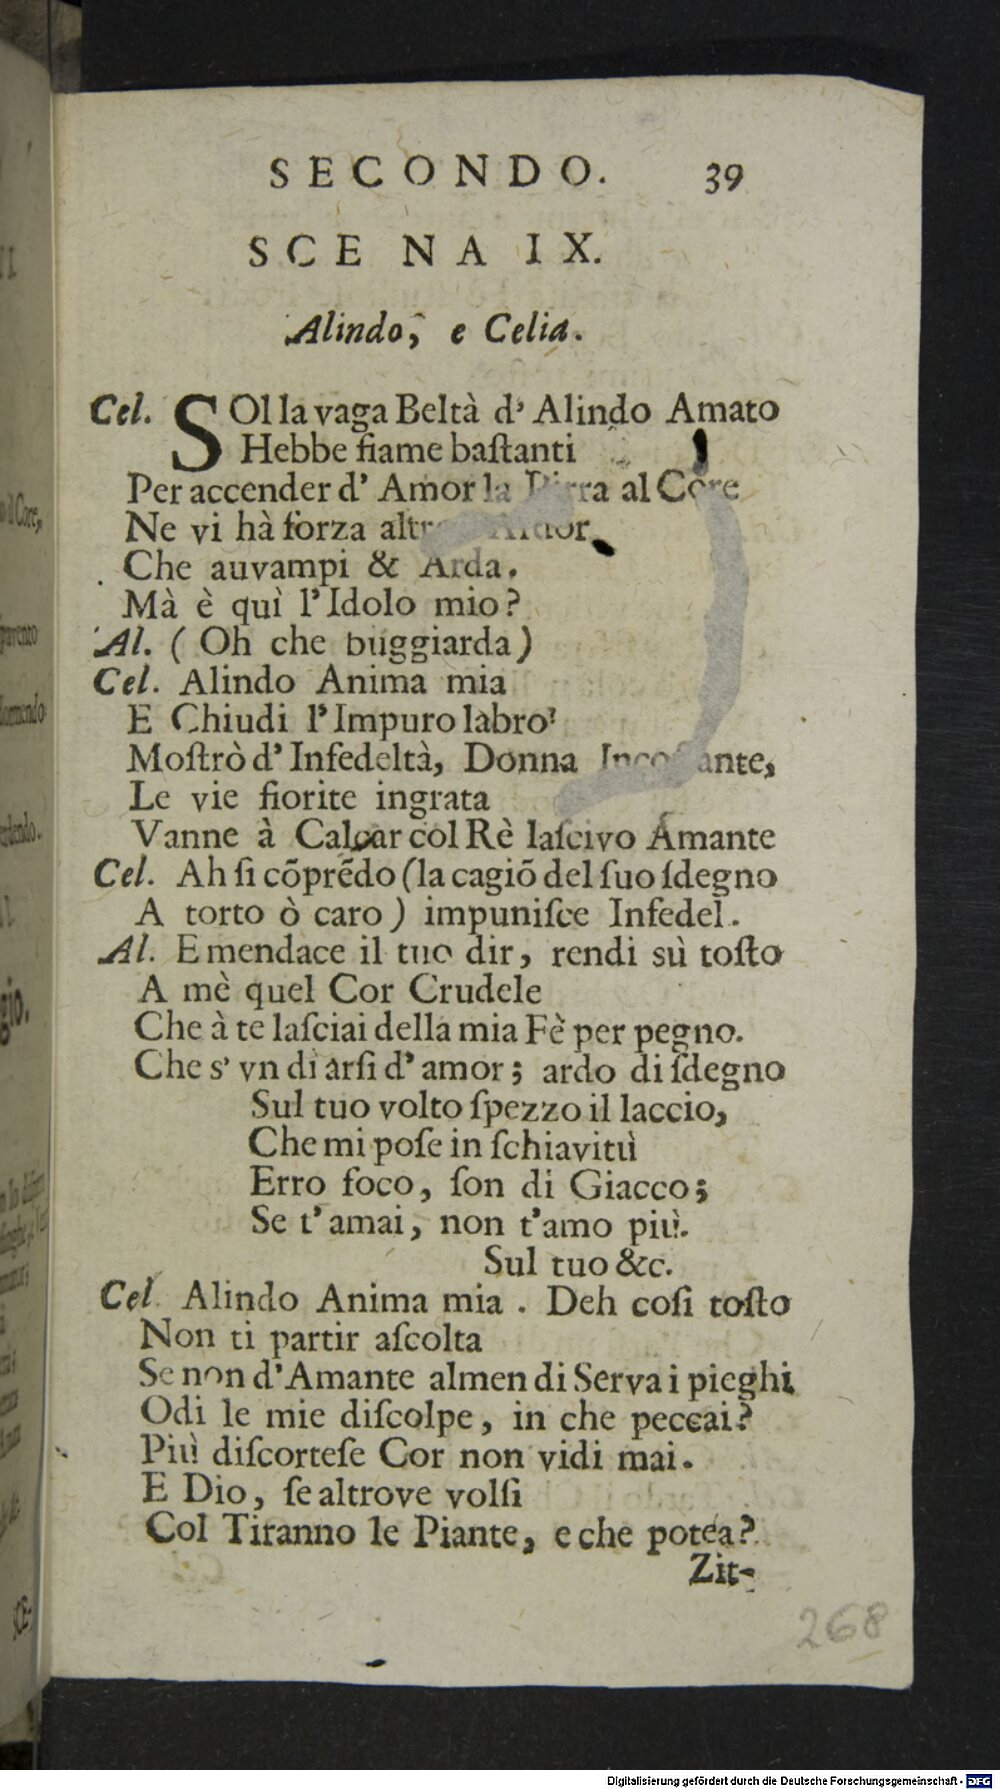 SECONDO. 39
SCENA IX.
Alindo, e Celia.
Cel. SOl la vaga Beltà d' Alindo Amato
Hebbe fiame baſtanti
Per accender d' Amor la Pirra al Core
Ne vi hà forza Ardor
Che auvampi & Arda.
Mà è quì l'Idolo mio?
Al. (Oh che buggiarda)
Cel. Alindo Anima mia
E Chiudi l'Impuro labro
Moſtrò d' Infedeltà, Donna Incoſtante,
Le vie fiorite ingrata
Vanne à Calcar col Rè laſcivo Amante
Cel. Ah ſi cōprēdo (la cagiō del ſuo ſdegno
A torto ò caro) impuniſce Infedel.
Al. E mendace il tuo dir, rendi sù toſto
A mè quel Cor Crudele
Che à te laſciai della mia Fè per pegno.
Che s' vn dì arſi d' amor; ardo di ſdegno
Sul tuo volto ſpezzo il laccio,
Che mi poſe in ſchiavitù
Erro foco, ſon di Giacco;
Se t'amai, non t'amo più.
Sul tuo &c.
Cel. Alindo Anima mia. Deh coſi toſto
Non ti partir aſcolta
Se non d'Amante almen di Serva i pieghi
Odi le mie diſcolpe, in che peccai?
Più diſcorteſe Cor non vidi mai.
E Dio, ſe altrove volſi
Col Tiranno le Piante, e che potea?
Zit-
268
Digitalisierung gefördert durch die Deutsche Forschungsgemeinschaft - DFG